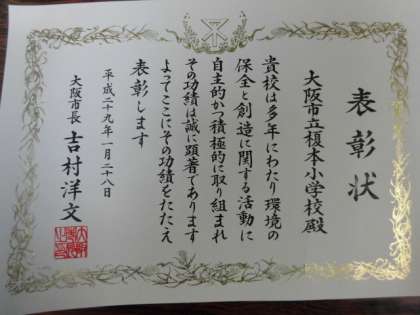 表彰状
大阪市立榎本小学校殿
貴校は多年にわたり環境の
保全と創造に関する活動に
自主的かつ積極的に取り組まれ
その功績は誠に顕著であります
よってここにその功績をたたえ
表彰します
平成二十九年一月二十八日
大阪市長 吉村洋文